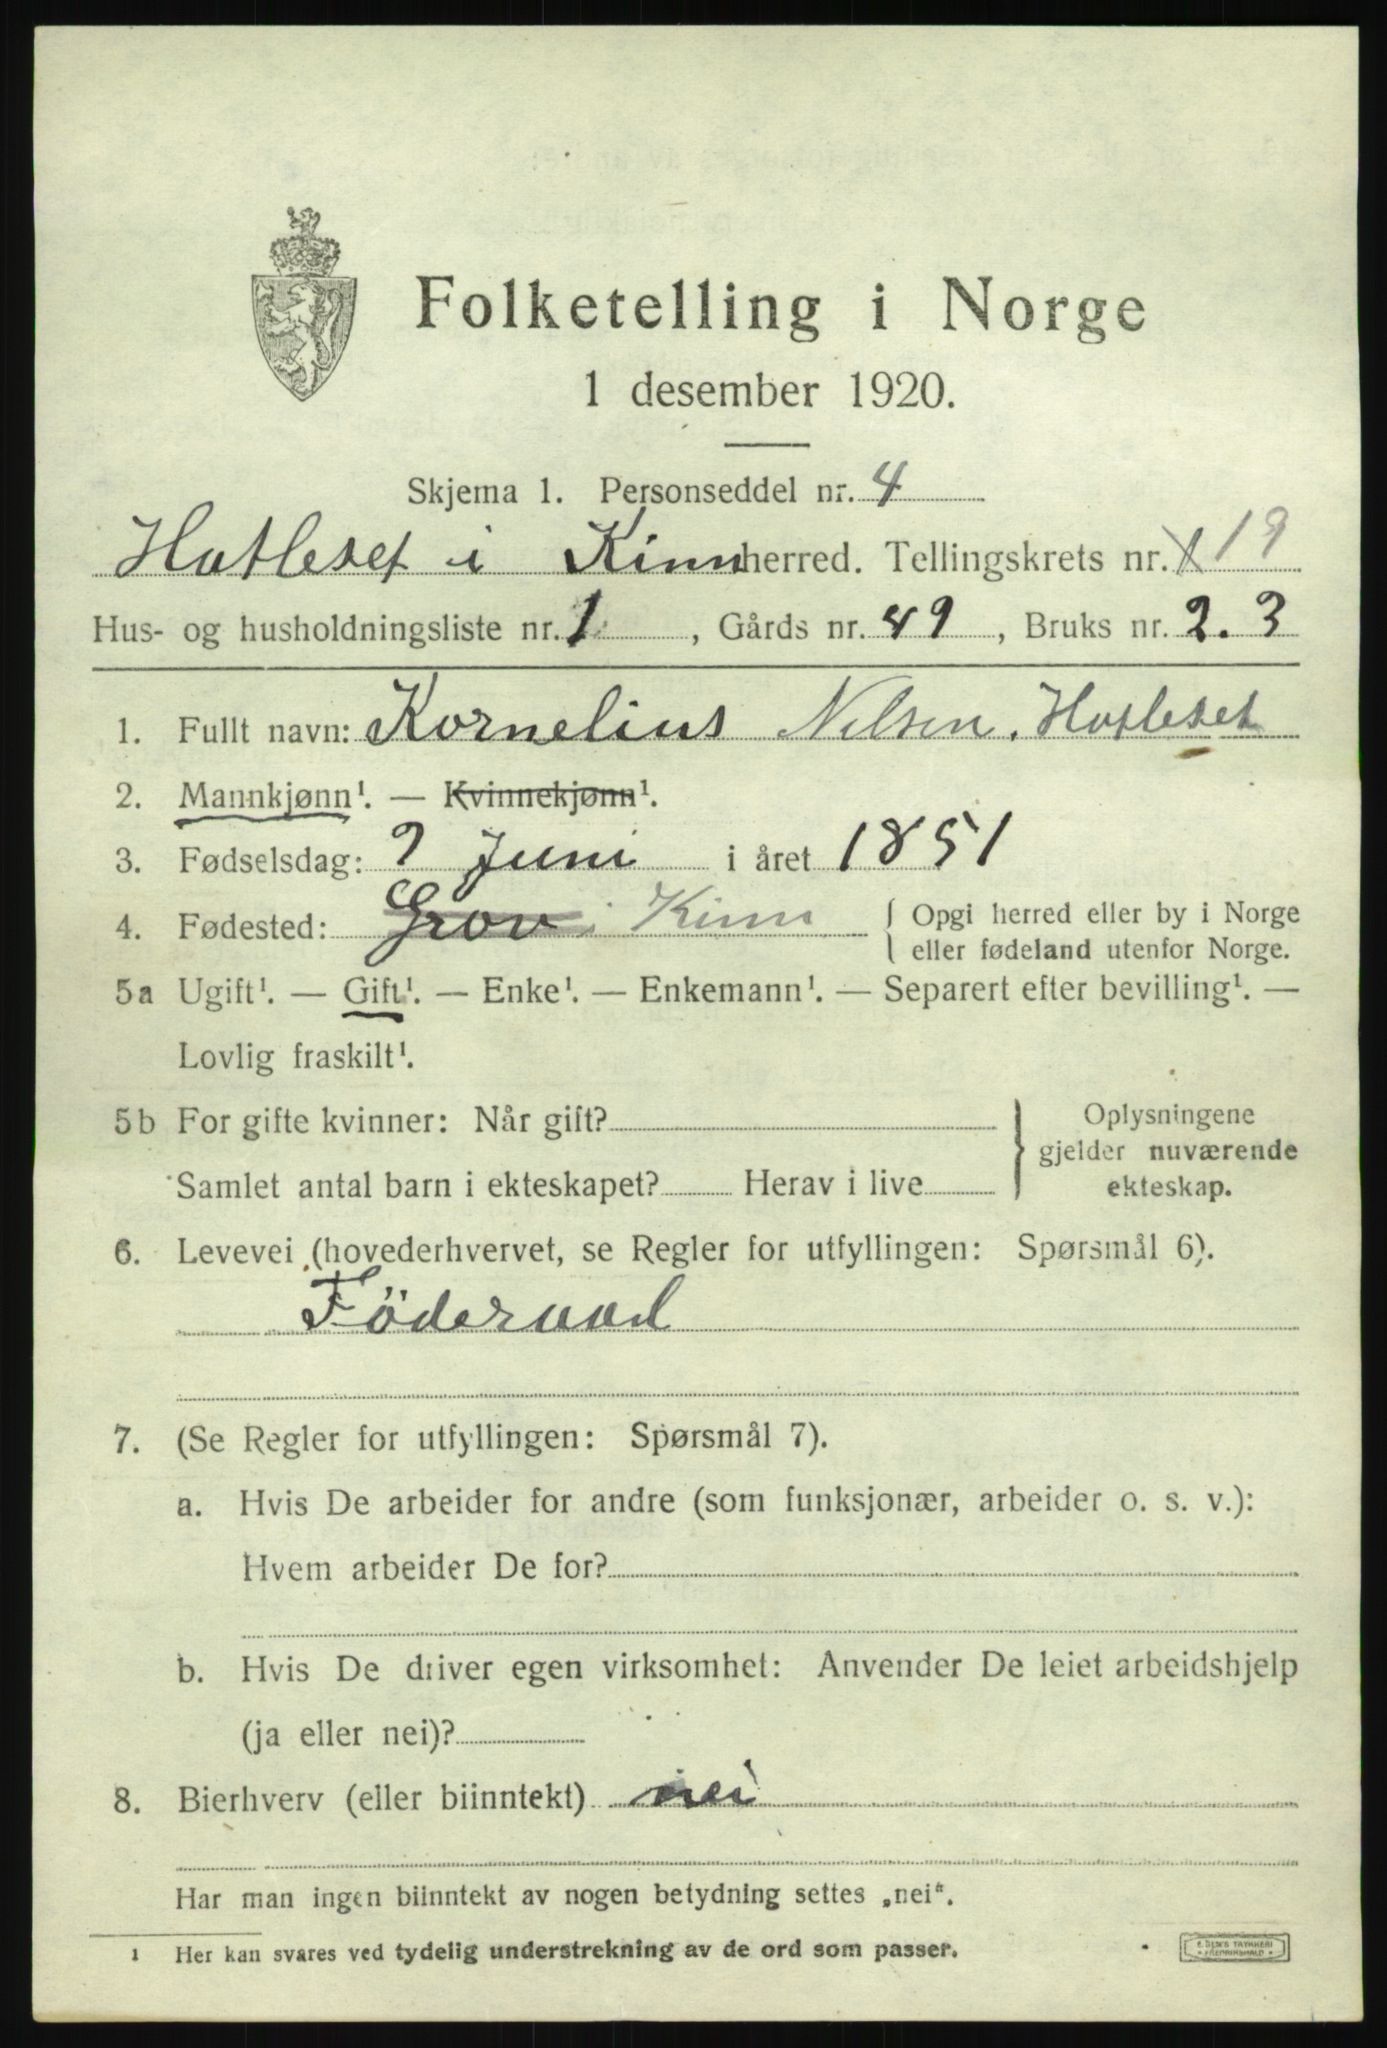 Folketelling i Norge
1 desember 1920.
Skjema 1. Personseddel nr. 4
Hatleset i Kinn herred. Tellingskrets nr. 1 19
Hus- og husholdningsliste nr. 1, Gårds nr. 49, Bruks nr. 2. 3
1. Fullt navn: Kornelius Nilsen. Hatleset
2. Mannkjønn¹. — Kvinnekjønn¹.
3. Fødselsdag: 9 Juni i året 1851
4. Fødested: Grov i Kinn { Opgi herred eller by i Norge
eller fødeland utenfor Norge.
5a Ugift¹. — Gift¹. — Enke¹. — Enkemann¹. — Separert efter bevilling¹. —
Lovlig fraskilt¹.
5b For gifte kvinner: Når gift? } Oplysningene
gjelder nuværende
Samlet antal barn i ekteskapet? Herav i live ekteskap.
6. Levevei (hovederhvervet, se Regler for utfyllingen: Spørsmål 6).
Föderaad
7. (Se Regler for utfyllingen: Spørsmål 7).
a. Hvis De arbeider for andre (som funksjonær, arbeider o. s. v.):
Hvem arbeider De for?
b. Hvis De driver egen virksomhet: Anvender De leiet arbeidshjelp
(ja eller nei)?
8. Bierhverv (eller biinntekt) nei
Har man ingen biinntekt av nogen betydning settes „nei“.
1 Her kan svares ved tydelig understrekning av de ord som passer.